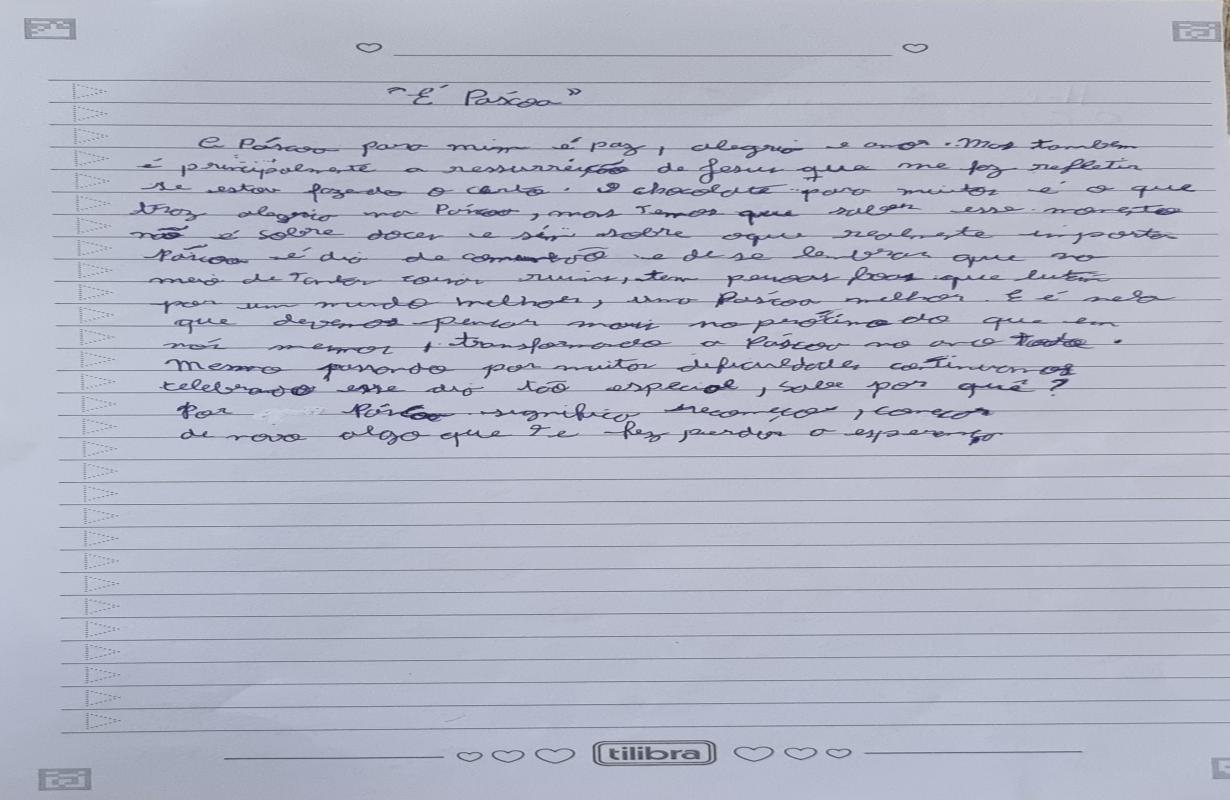 "É Páscoa"
A Páscoa para mim é paz, alegria e amor. Mas também
é principalmente a ressurreição de Jesus que me fez refletir
se estou fazedo o certo. O chocolate para muitos é o que
traz alegria na Páscoa, mas temos que saber esse momento
não é sobre doces e sim sobre oque realmente importa
Páscoa é dia de comunhão e de se lembrar que no
meio de tantas coisas ruins, tem pessoas boas que lutam
por um mundo melhor, uma Páscoa melhor. E é nela
que devemos pensar mais no próximo do que em
nós mesmos, transformado a Páscoa no ano todo.
Mesmo passando por muitas dificuldades continuamos
celebrado esse dia tão especial, sabe por quê?
Por Páscoa significa recomeçar, começar
de novo algo que te fez perder a esperança
tilibra